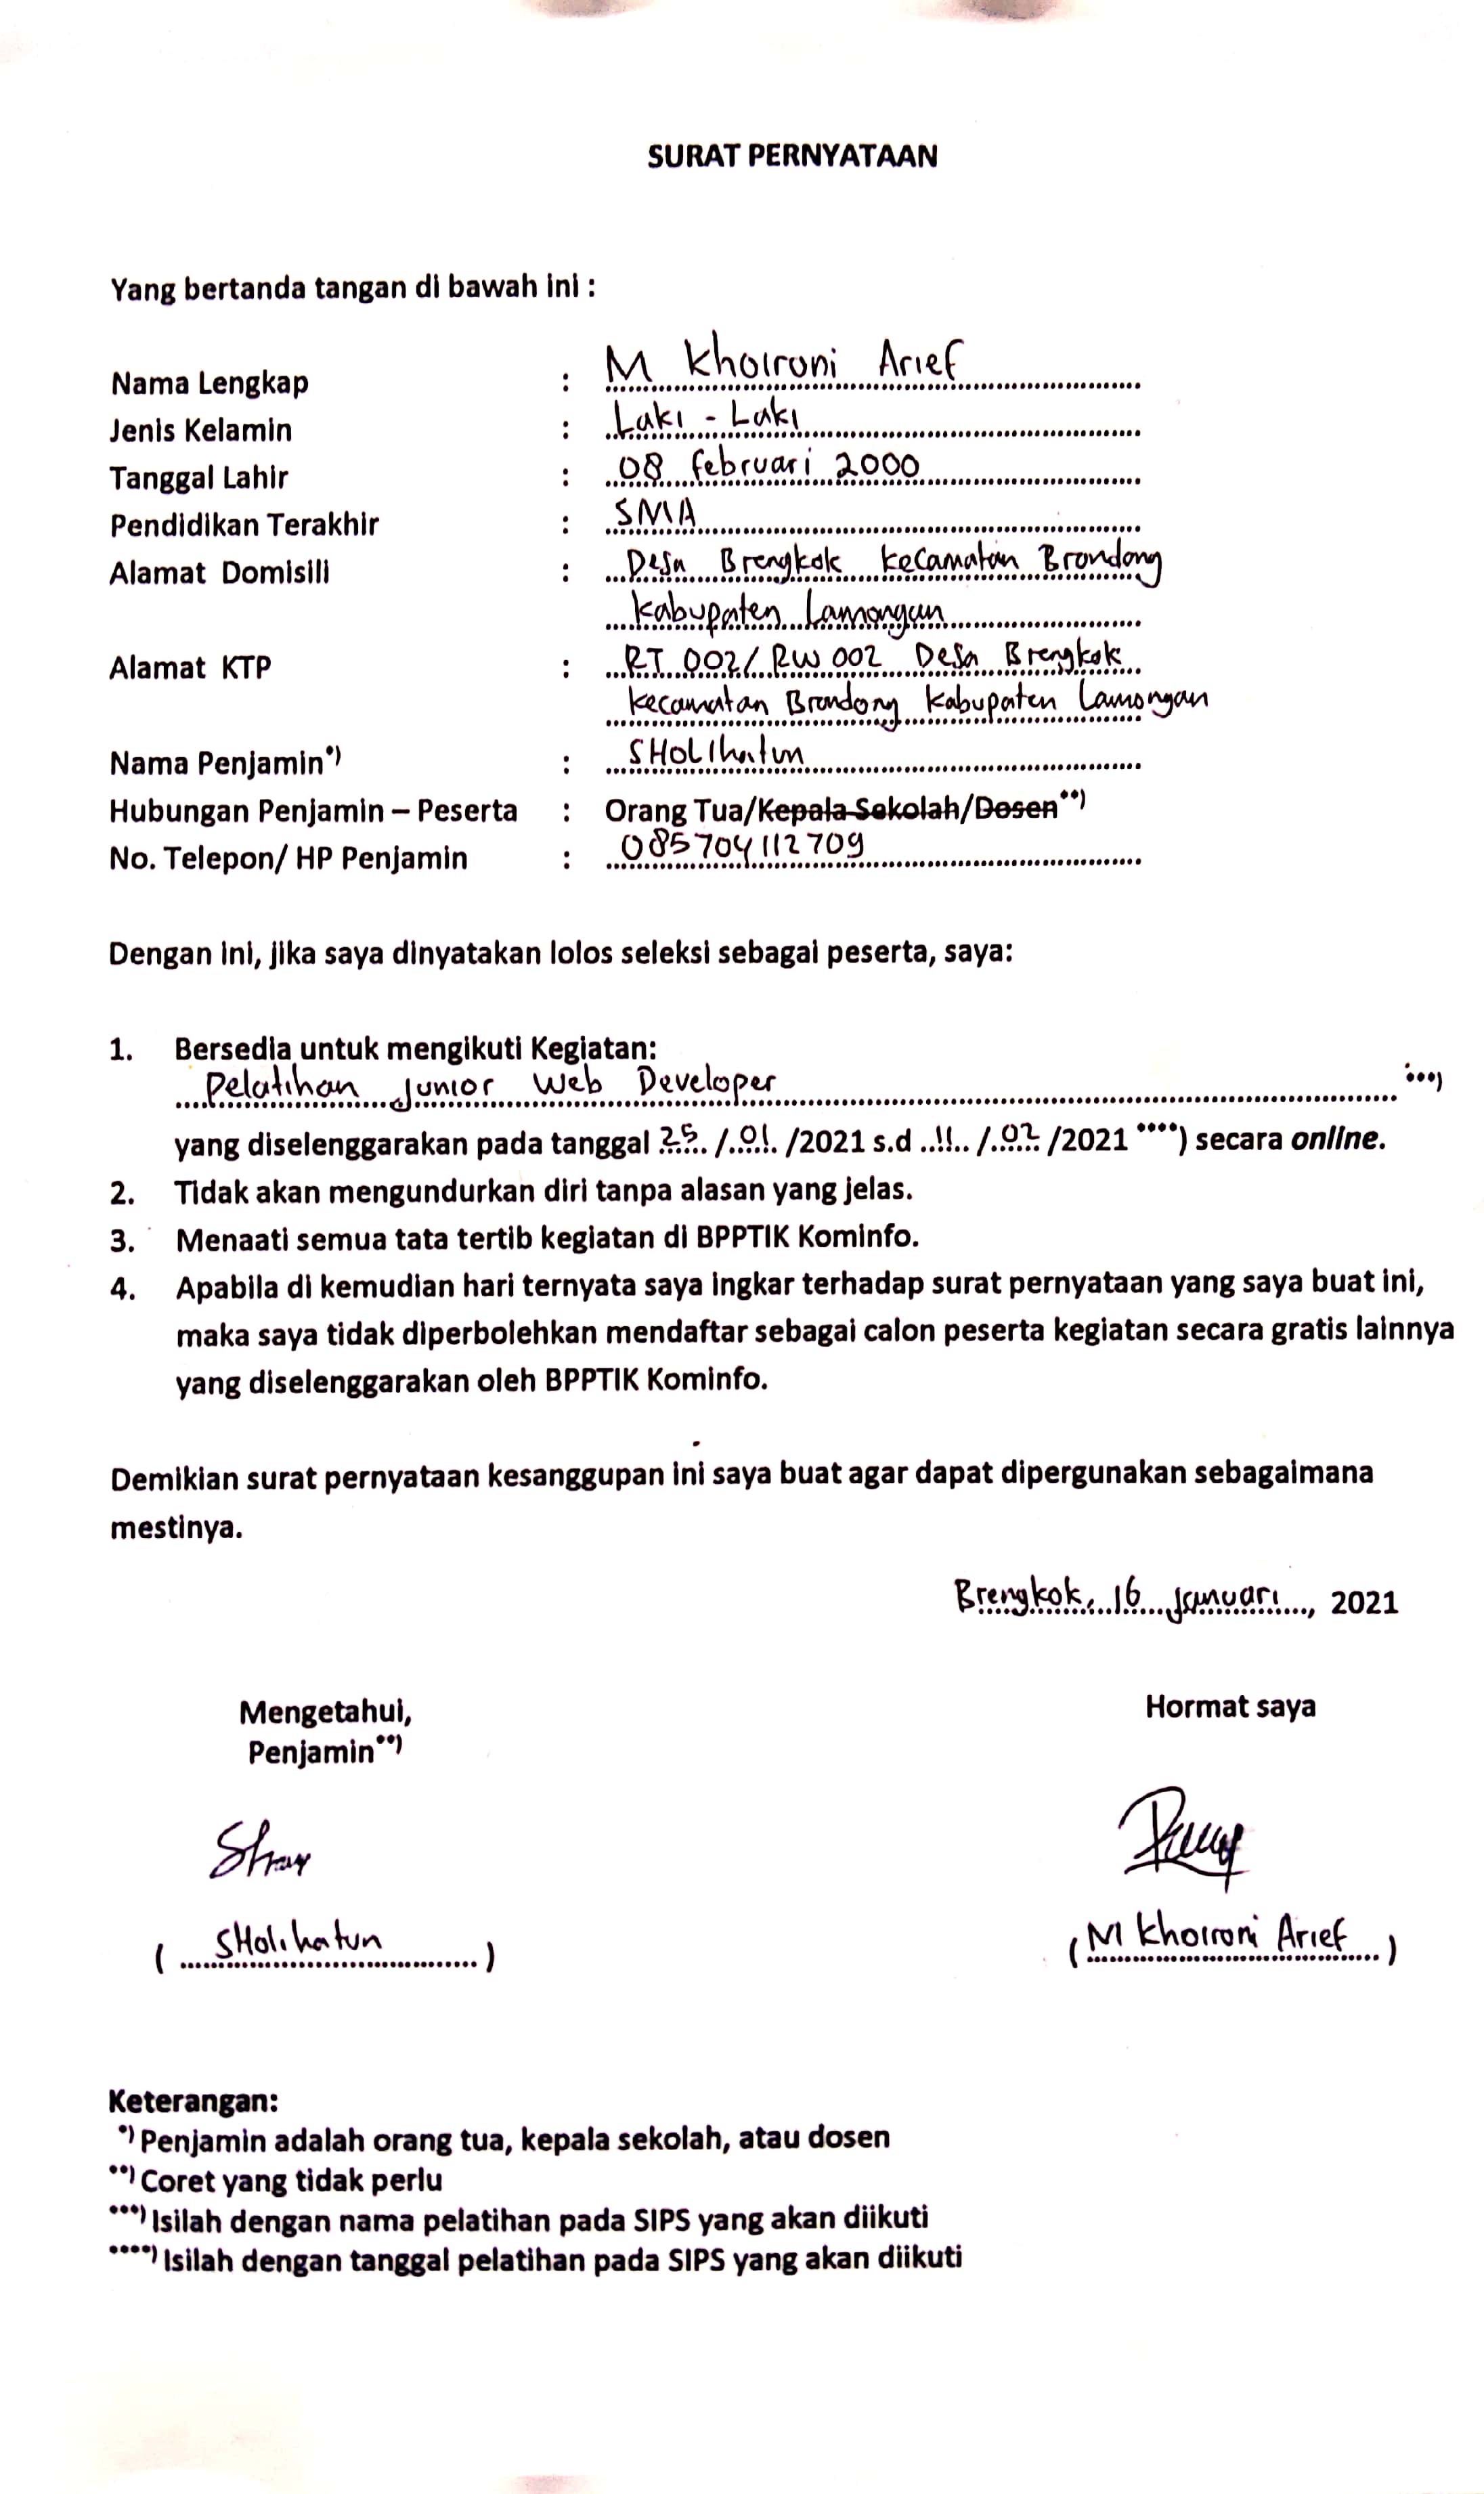 SURAT PERNYATAAN
Yang bertanda tangan di bawah ini :
Nama Lengkap : M Khoironi Arief
Jenis Kelamin : Laki - Laki
Tanggal Lahir : 08 februari 2000
Pendidikan Terakhir : SMA
Alamat Domisili : Desa Brengkok kecamatan Brondong
kabupaten Lamongan
Alamat KTP : RT 002/ RW 002 Desa Brengkok
kecamatan Brondong kabupaten Lamongan
Nama Penjamin*) : SHolihatun
Hubungan Penjamin – Peserta : Orang Tua/Kepala Sekolah/Dosen**)
No. Telepon/ HP Penjamin : 085704112709
Dengan ini, jika saya dinyatakan lolos seleksi sebagai peserta, saya:
1. Bersedia untuk mengikuti Kegiatan:
Pelatihan Junior Web Developer ***)
yang diselenggarakan pada tanggal 25 / 01 /2021 s.d 11 / 02 /2021 ****) secara online.
2. Tidak akan mengundurkan diri tanpa alasan yang jelas.
3. Menaati semua tata tertib kegiatan di BPPTIK Kominfo.
4. Apabila di kemudian hari ternyata saya ingkar terhadap surat pernyataan yang saya buat ini,
maka saya tidak diperbolehkan mendaftar sebagai calon peserta kegiatan secara gratis lainnya
yang diselenggarakan oleh BPPTIK Kominfo.
Demikian surat pernyataan kesanggupan ini saya buat agar dapat dipergunakan sebagaimana
mestinya.
Brengkok, 16 Januari, 2021
Mengetahui, Hormat saya
Penjamin**)
( SHolihatun ) ( M Khoironi Arief )
Keterangan:
*) Penjamin adalah orang tua, kepala sekolah, atau dosen
**) Coret yang tidak perlu
***) Isilah dengan nama pelatihan pada SIPS yang akan diikuti
****) Isilah dengan tanggal pelatihan pada SIPS yang akan diikuti